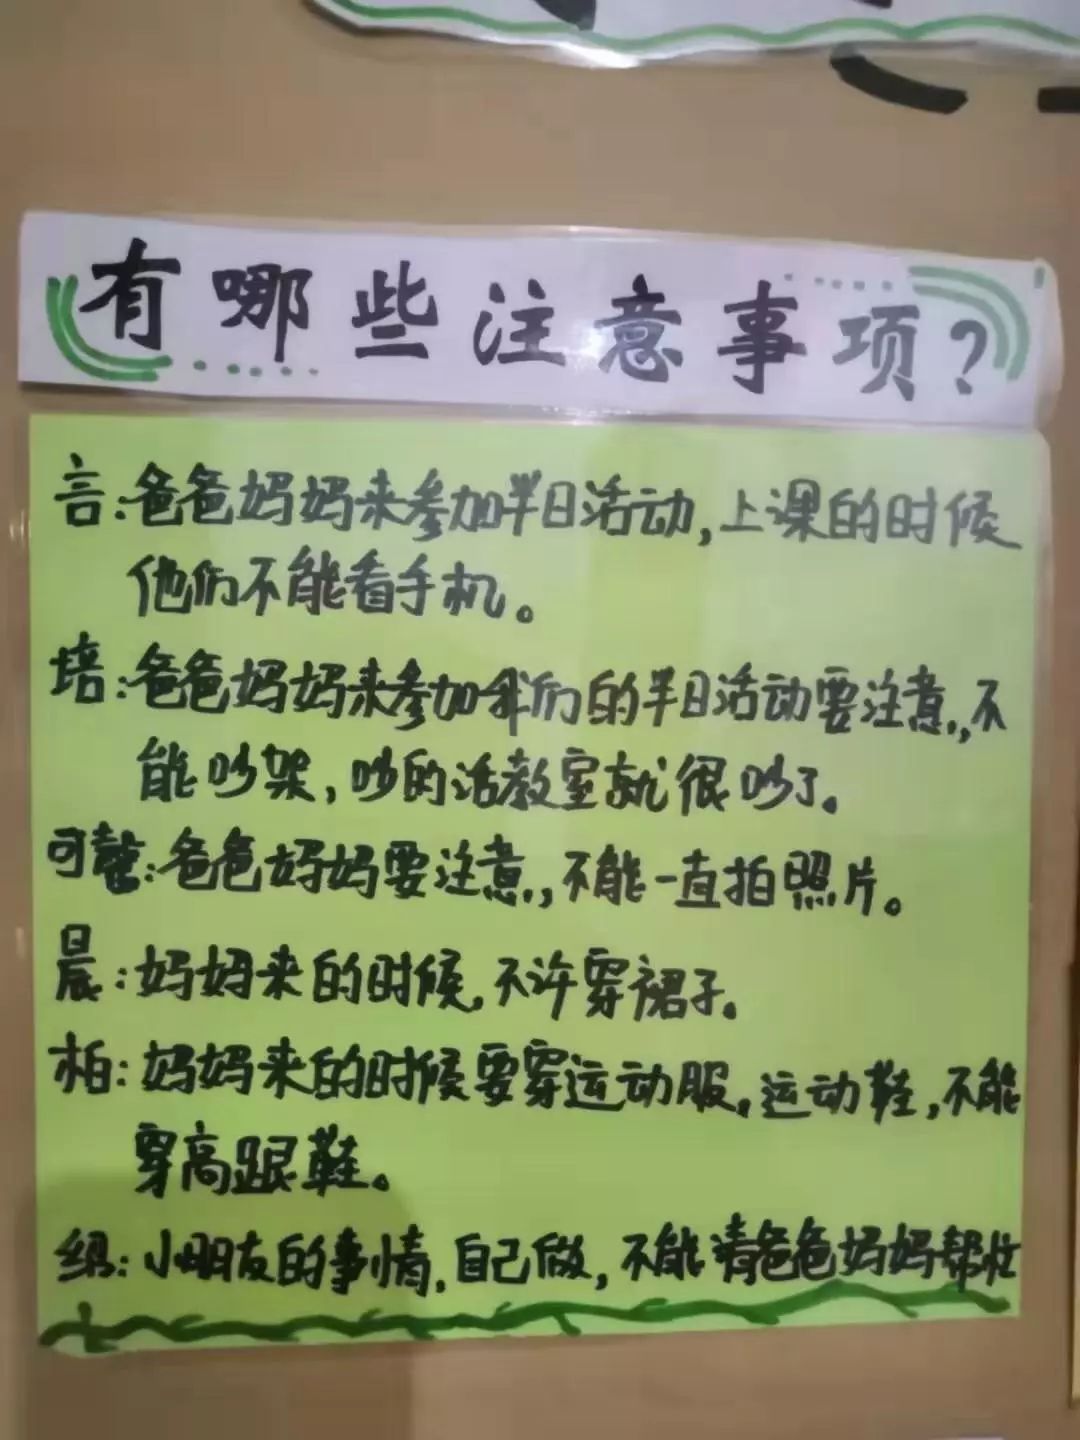 有哪些注意事项?
言:爸爸妈妈来参加半日活动,上课的时候
他们不能看手机。
培:爸爸妈妈来参加我们的半日活动要注意,不
能吵架,吵的话教室就很吵了。
可馨:爸爸妈妈要注意,不能一直拍照片。
晨:妈妈来的时候,不许穿裙子。
柏:妈妈来的时候要穿运动服,运动鞋,不能
穿高跟鞋。
小朋友的事情,自己做,不能请爸爸妈妈帮忙